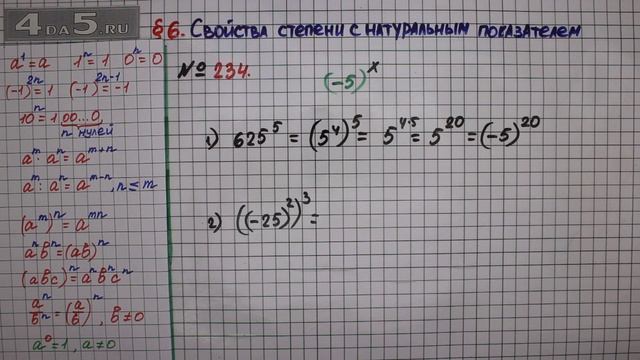 4DA5.RU
§6. Свойства степени с натуральным показателем
a¹=a 1ⁿ=1 0ⁿ=0
(-1)²ⁿ=1 (-1)²ⁿ⁻¹=-1
10ⁿ=1 00...0,
n нулей
aᵐ·aⁿ=aᵐ⁺ⁿ
aᵐ:aⁿ=aᵐ⁻ⁿ, n≤m
(aᵐ)ⁿ=aᵐⁿ
aⁿbⁿ=(ab)ⁿ
(abc)ⁿ=aⁿbⁿcⁿ
aⁿ/bⁿ=(a/b)ⁿ, b≠0
a⁰=1, a≠0
№ 234.
(-5)ˣ
1) 625⁵=(5⁴)⁵=5⁴·⁵=5²⁰=(-5)²⁰
2) ((-25)²)³=